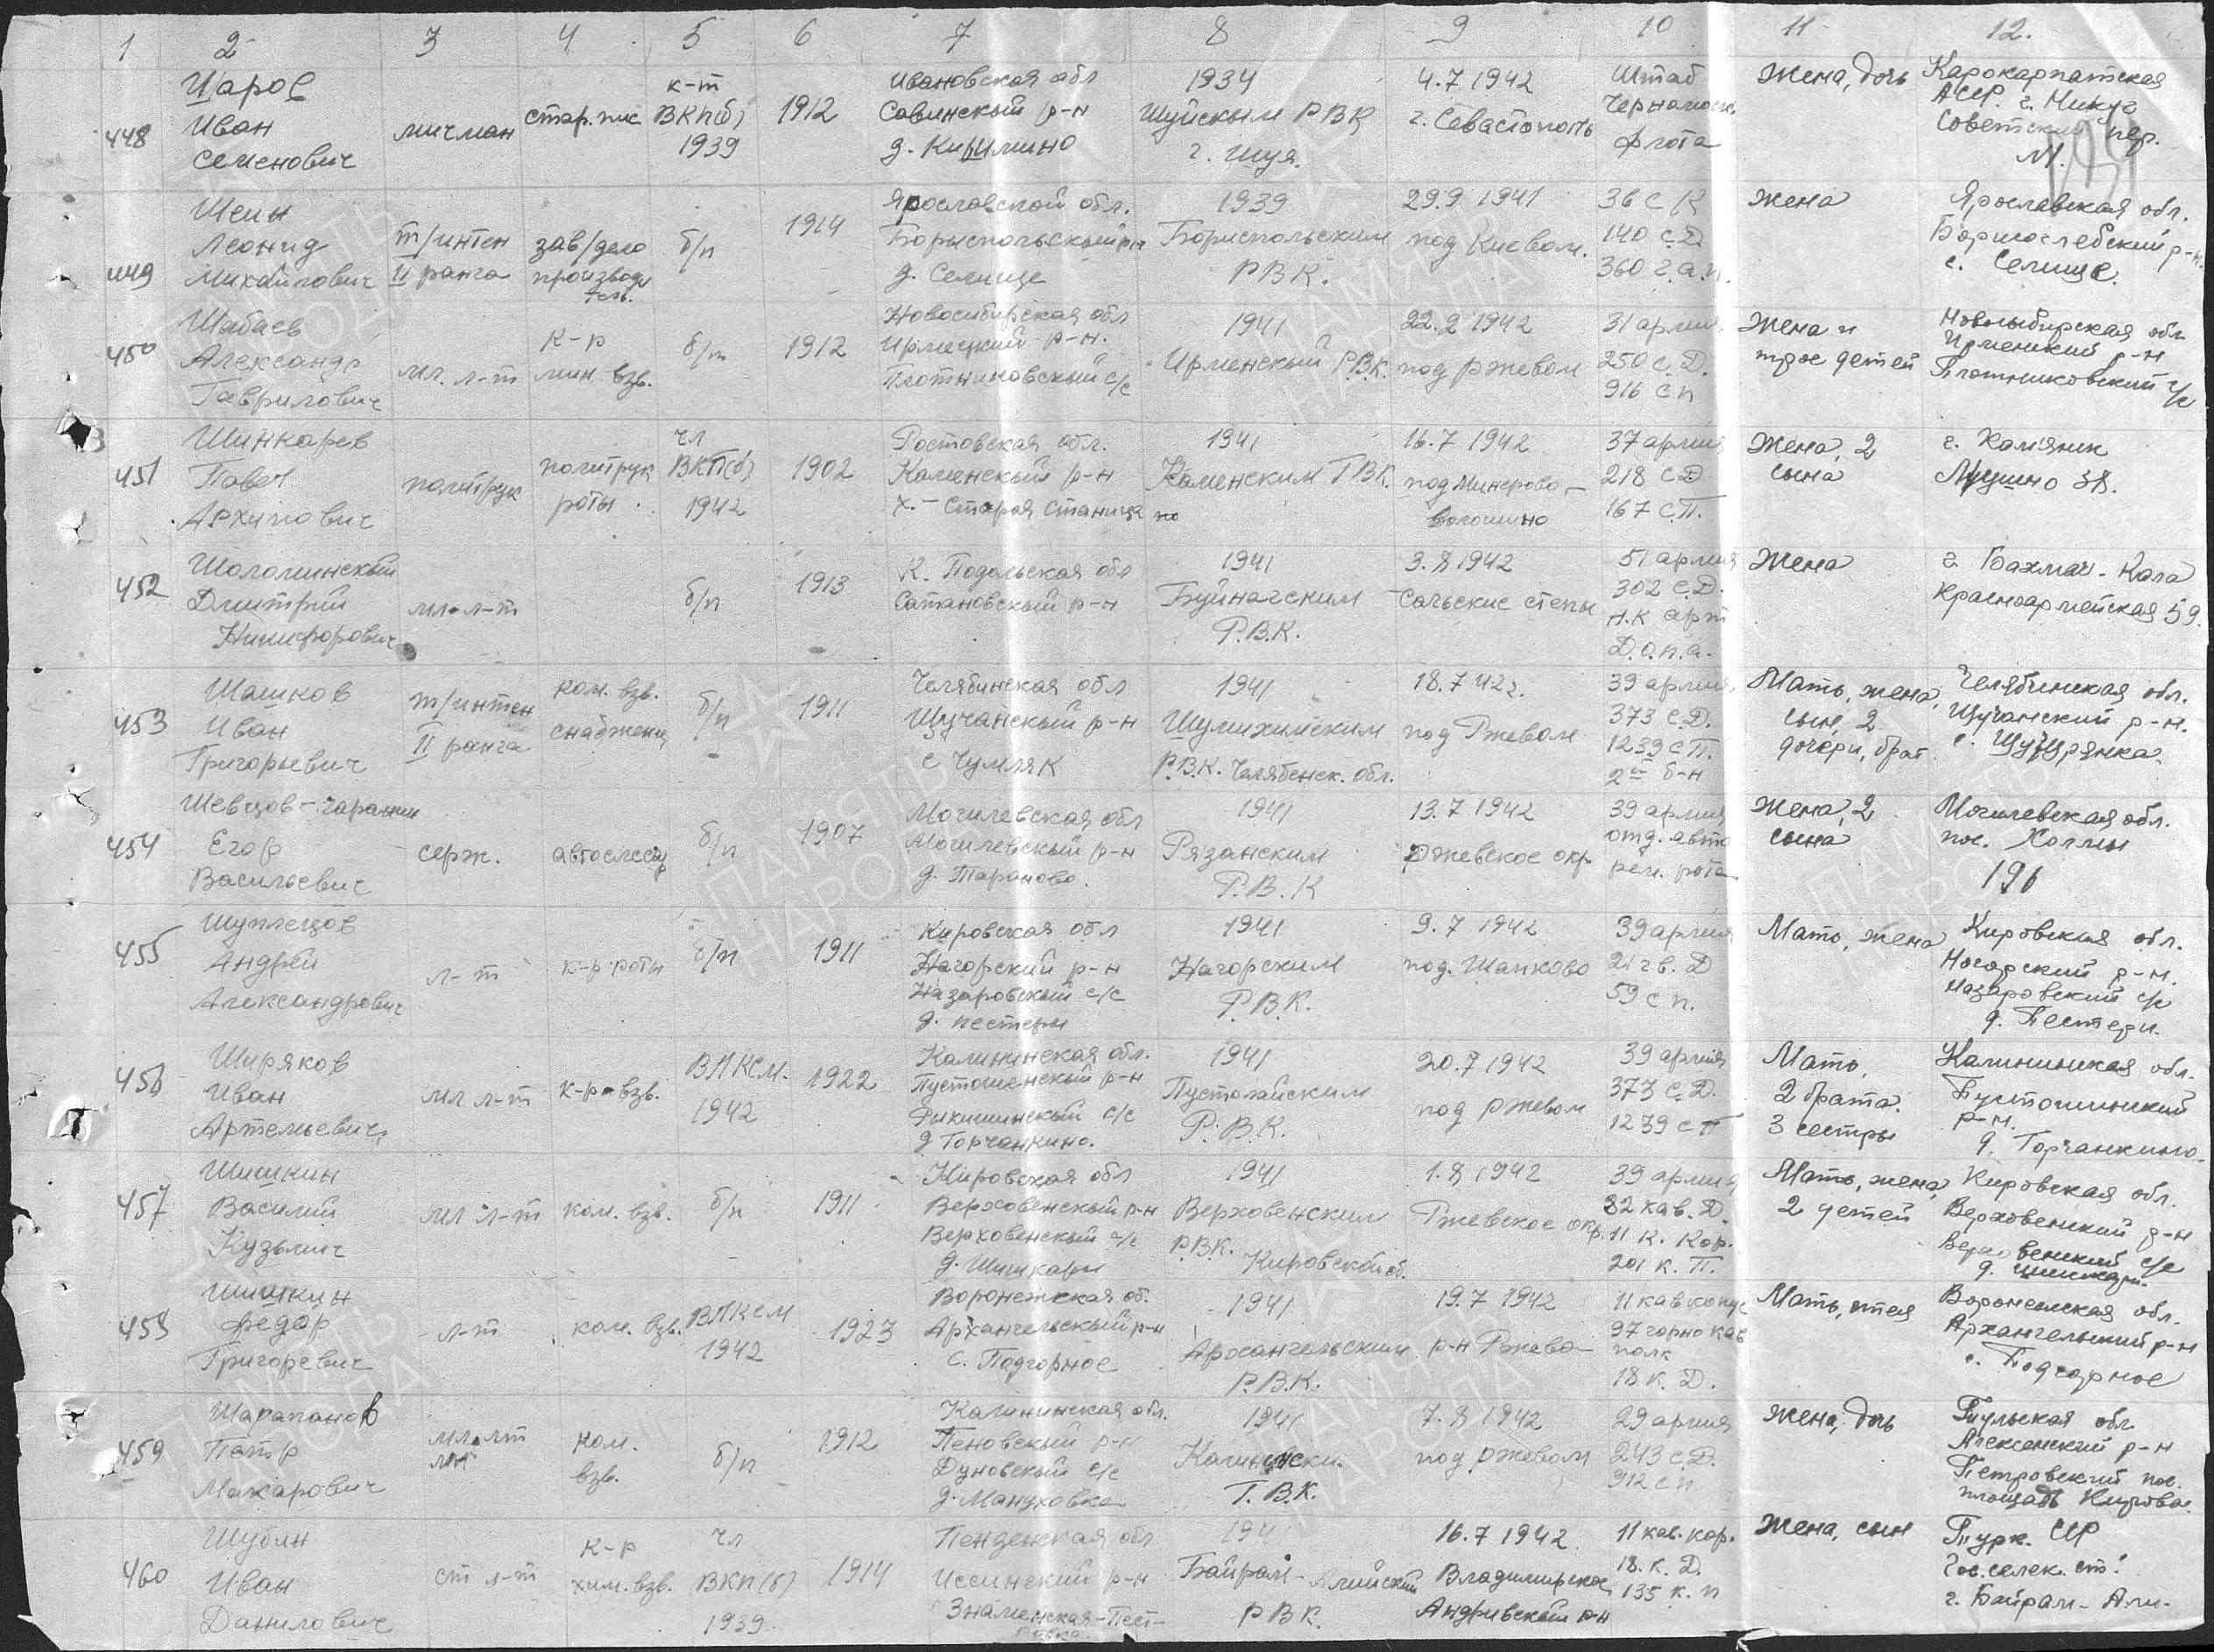 1 2 3 4 5 6 7 8 9 10 11 12.
448
Шарое
Иван
Семенович
мичман
стар. пис
к-т
ВКП(б)
1939
1912
Ивановская обл
Савинский р-н
д. Кишлино
1934
Шуйским РВК
г. Шуя.
4.7 1942
г. Севастополь
Штаб
Черноморск.
флота
Жена, дочь
Карокарпатская
АССР. г. Микуг
Советский пер.
449
Шеин
Леонид
Михайлович
т/интен
II ранга
зав/дело
производи
тель.
б/п
1914
Ярославской обл.
Бориспольский р-н
д. Селище
1939
Бориспольским
РВК.
29.9 1941
под Киевом.
36 С К
140 с.Д
360 г.а.п.
жена
Ярославская обл.
Борисоглебский р-н.
с. Селище.
450
Шабаев
Александр
Гаврилович
мл. л-т
К-р
мин. взв.
б/п
1912
Новосибирская обл
Ирменский р-н.
Плотниковский с/с
1941
Ирменский Р.В.К.
22.2 1942
под Ржевом
31 армия
250 с.Д.
916 с п
Жена и
трое детей
Новосибирская обл
Ирменский р-н
Плотниковский с/с
451
Шинкарев
Павел
Архипович
политрук
политрук
роты.
чл
ВКП(б)
1942
1902
Ростовская обл.
Каменский р-н
х. - Старая Станица
1941
Каменским ГВК.
16.7 1942
под Минерово -
волошино
37 армия
218 с.Д
167 с.П.
Жена, 2
сына
г. Камяник
452
Шоломинский
Дмитрий
Никифорович
мл. л-т
б/п
1913
К. Подольская обл
Сатановский р-н
1941
Буйнагским
Р.В.К.
3.8 1942
Сальские степи
51 армия
302 с.Д.
н.к арт
Д.о.п.а.
Жена
г. Бахмач-Кала
Красноармейская 59.
453
Шашков
Иван
Григорьевич
т/интен
II ранга
ком. взв.
снабжениц
б/п
1911
Челябинская обл
Щучанский р-н
с Чумляк
1941
Шумихинским
Р.В.К. Челябинск. обл.
18.7 42 г.
под Ржевом
39 армия,
373 с.Д.
1239 с П.
2ой б-н
Мать, жена,
сын, 2
дочери, брат
Челябинская обл.
Щучанский р-н.
454
Шевцов-Гаранин
Егор
Васильевич
серж.
автослесар
б/п
1907
Могилевская обл
Могилевский р-н
д. Тараново.
1941
Рязанским
Р.В.К
13.7 1942
Ржевское окр
39 армия
отд. авто
рем. рота
Жена, 2
сына
Могилевская обл.
пос. Холмы
196
455
Шуплецов
Андрей
Александрович
л-т
к-р роты
б/п
1911
Кировская обл
Нагорский р-н
Назаровский с/с
д. пестеры
1941
Нагорским
Р.В.К.
9.7 1942
под. Шапково
39 армия
21 гв. Д
59 с п.
Мать, жена
Кировская обл.
Нагорский р-н.
Назаровский с/с
д. Пестери.
456
Ширяков
Иван
Артемьевич
мл л-т
к-р взв.
ВЛКСМ.
1942
1922
Калининская обл.
Пустошенский р-н
Рикишинский с/с
д Горчанкино.
1941
Пустошйским
Р.В.К.
20.7 1942
под Ржевом
39 армия
373 с.Д.
1239 с П
Мать,
2 брата.
3 сестры
Калининская обл.
Пустошинский
р-н.
д. Горчанкино.
457
Шишкин
Василий
Кузьмич
мл л-т
ком. взв.
б/п
1911
Кировская обл
Верховенский р-н
Верховенский с/с
д. Шишкары
1941
Верховенским
Р.В.К. Кировской об.
1.8 1942
Ржевское окр.
39 армия
82 кав. Д.
11 К. Кор.
201 к. П.
Мать, жена,
2 детей
Кировская обл.
Верховенский р-н
Верховенский с/с
д. Шишкари.
458
Шишкин
Федор
Григоревич
л-т
ком. взв.
ВЛКСМ
1942
1923
Воронежская об.
Архангельский р-н
с. Подгорное
1941
Архангельским
Р.В.К.
19.7 1942
р-н Ржева
11 кав копус
97 горно кав
полк
18 к. Д.
Мать, отец
Воронежская обл.
Архангельский р-н
с. Подгорное
459
Шарапанов
Петр
Макарович
мл. лт
ком.
взв.
б/п
1912
Калининская обл.
Пеновский р-н
Дуновский с/с
д. Мануховка
1941
Калинински.
Г.В.К.
7.8 1942
под Ржевом
29 армия
243 с.Д.
912 с п
Жена, дочь
Тульская обл
Алексенский р-н
Петровский пос.
площадь Кирова.
460
Шубин
Иван
Данилович
ст л-т
к-р
хим. взв.
чл
ВКП(б)
1939.
1914
Пензенская обл
Иссинский р-н
Знаменская-Пест-
194
Байрам-Алийский
РВК.
16.7 1942.
Владимирское
Андривский р-н
11 кав. кор.
18. к. Д.
135 к. п
Жена, сын
Турк. ССР
Гос. селек. ст.
г. Байрам-Али.
ПАМЯТЬ
НАРОДА